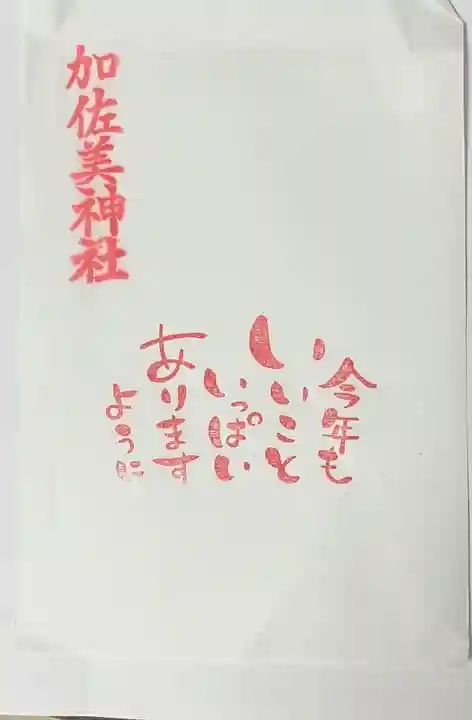 加佐美神社
今年も
いいこと
いっぱい
あります
ように